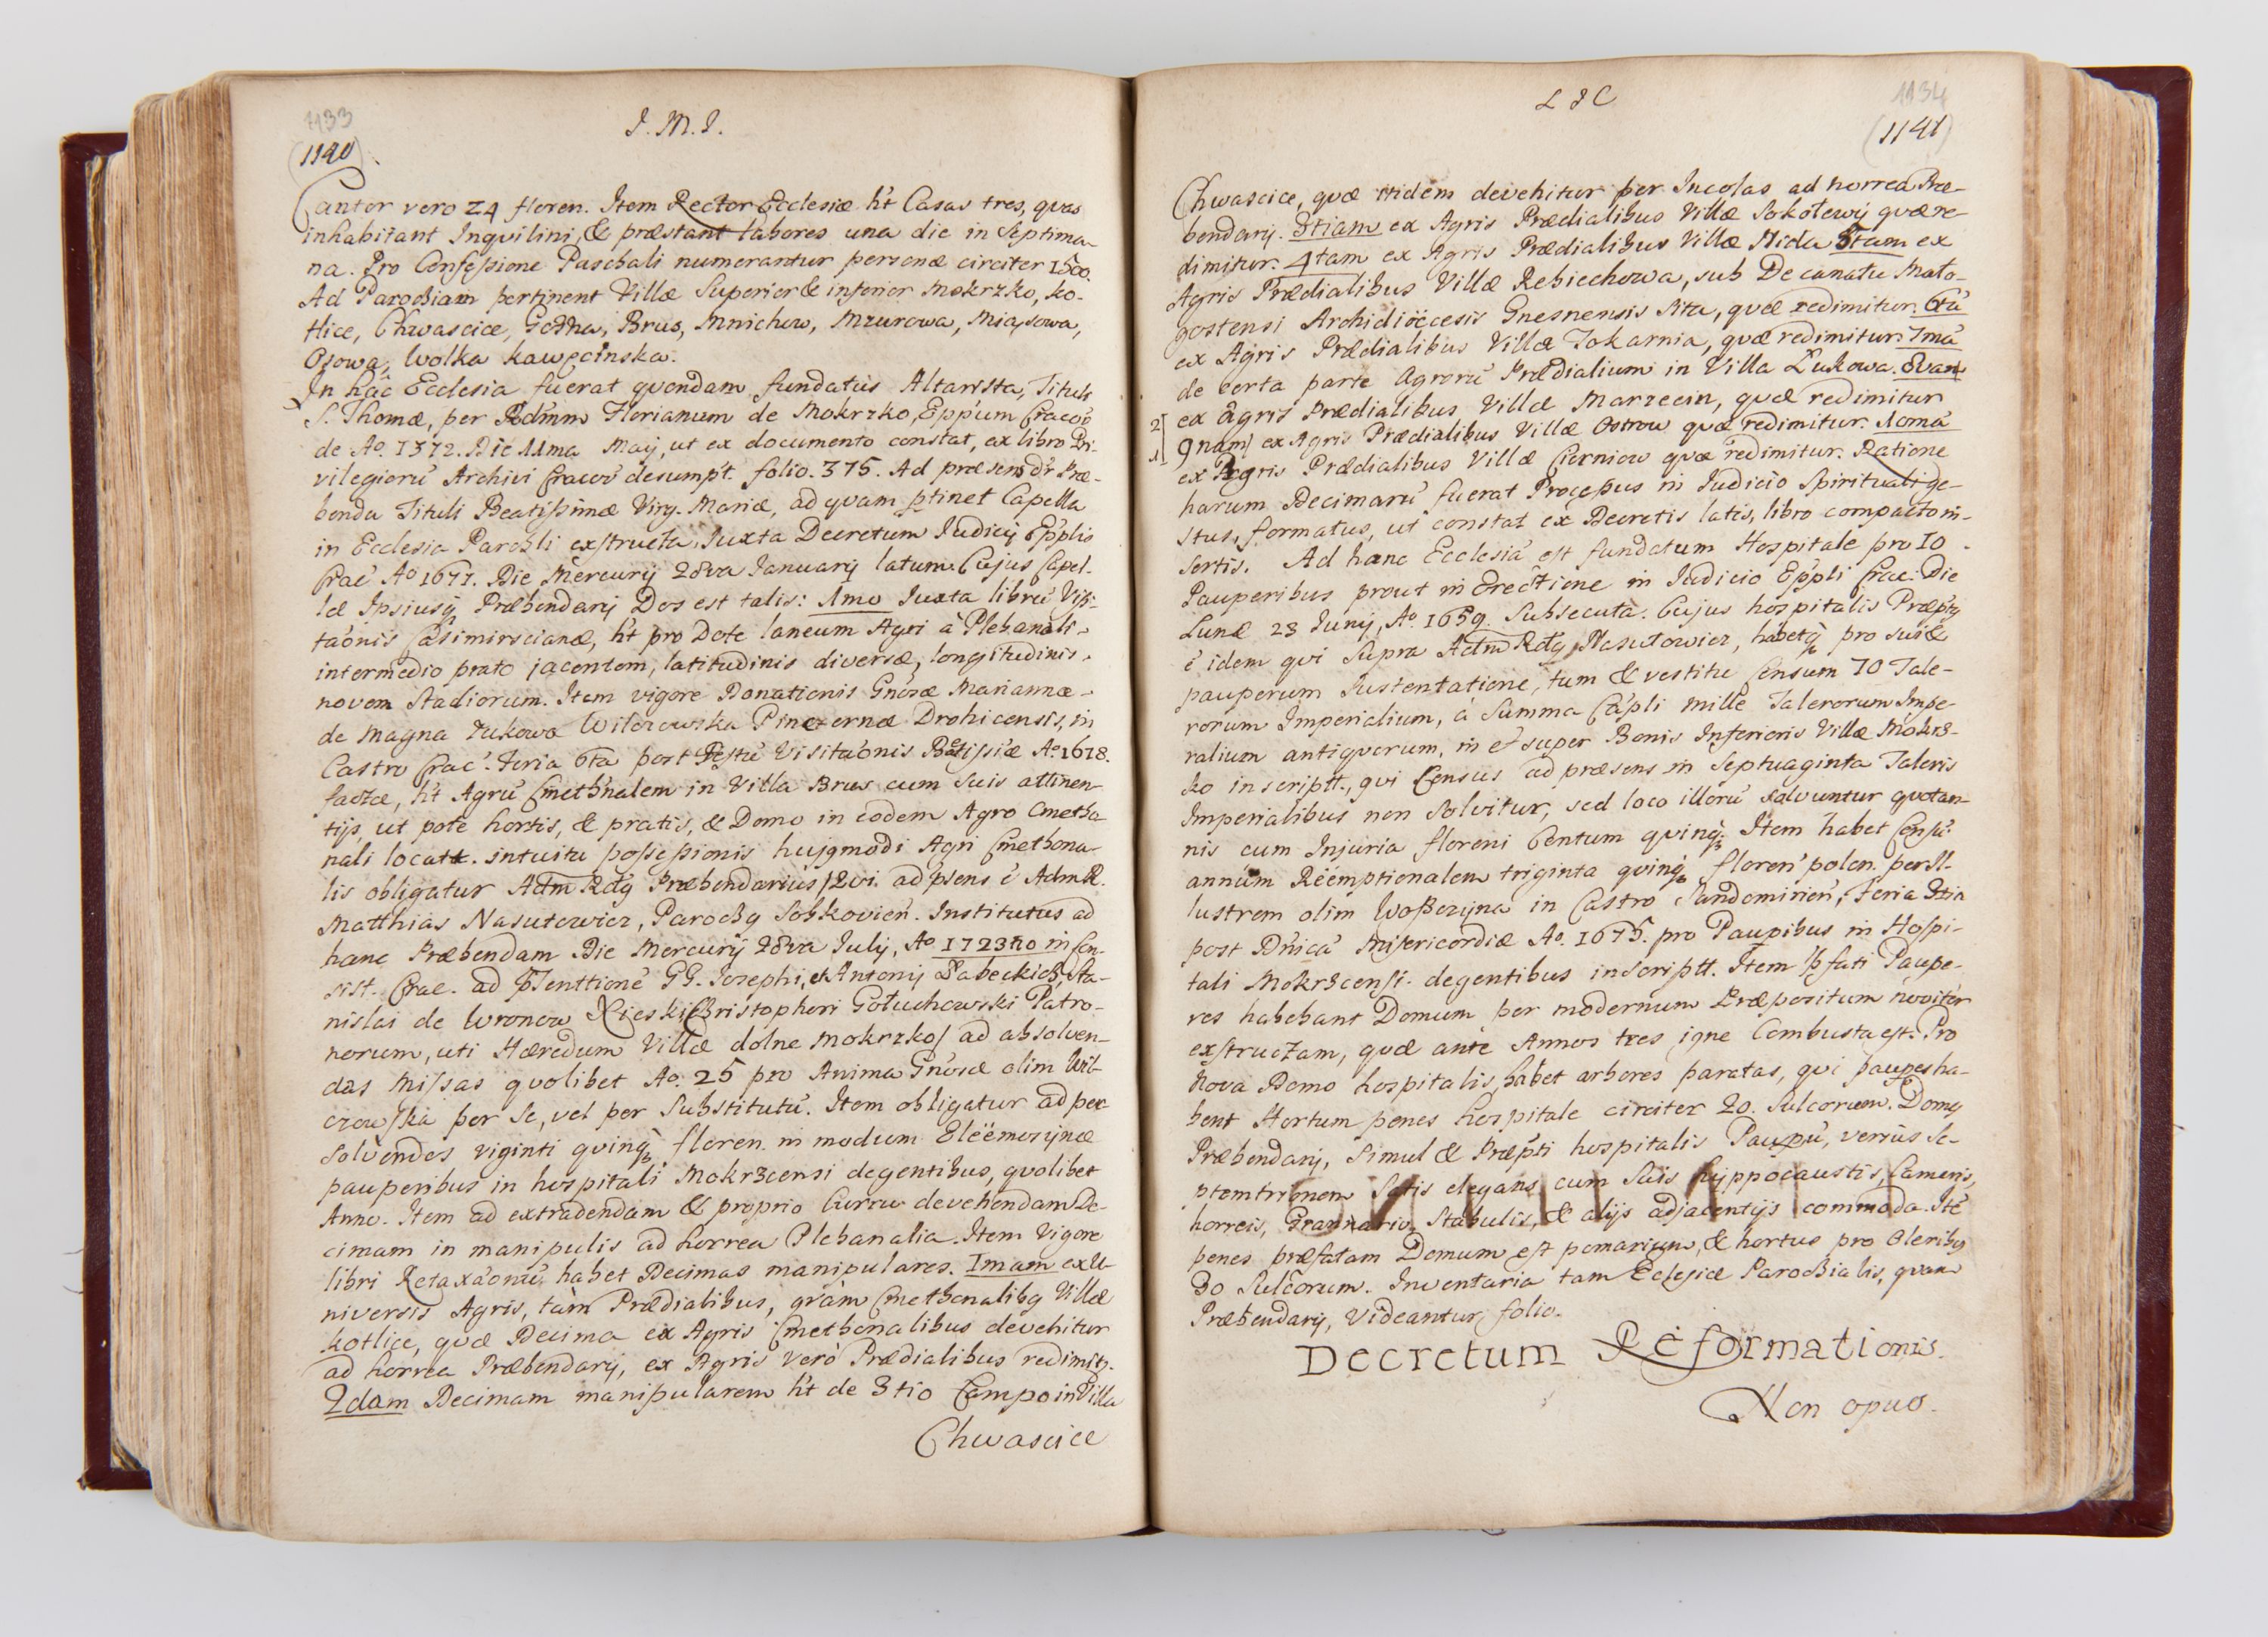 1133
(1140)
J. M. J.
Cantor vero 24 floren. Item Rector Ecclesiæ h't Casas tres, quas
inhabitant Inquilini, & præstant labores una die in Septima-
na. Pro Confessione Paschali numerantur personæ circiter 1500.
Ad Parochiam pertinent Villæ Superior & inferior Mokrzko, Ko-
tlice, Chwascice, Brus, Mnichow, Mzurowa, Miąsowa,
Osowa, Wolka Kawęcinska.
In hac Ecclesia fuerat quondam fundatus Altarista, Tituli
S. Thomæ, per Rdmm Florianum de Mokrzko, Epp'um Cracov
de Ao. 1372. Die 11ma Maij, ut ex documento constat, ex libro Pri-
vilegioru' Archivi Cracov desumpt. folio. 375. Ad præsens d'r Præ-
benda Tituli Beatissimæ Virg. Mariæ, ad quam ptinet Capella
in Ecclesia Parochli exstructa, Juxta Decretum Judicij Epp'lis
Crac' Ao 1677. Die Mercurij 28va Januarij latum. Cujus Capel-
læ Ipsiusq Præbendarij Dos est talis: 1mo Juxta libru' Visi-
ta'onis Casimirscianæ, h't pro Dote laneum Agri à Plebanali
intermedio prato jacentem, latitudinis diversæ, longitudinis
novem Stadiorum. Item vigore Donationis G'nosæ Mariannæ
de Magna Zukowa Wilczowska Pincernæ Drohicensis, in
Castro Crac'. Feria 6ta post Festu' Visita'onis Beatissiæ Ao. 1618.
factæ, h't Agru' Cmeth'nalem in Villa Brus cum Suis attinen-
tijs, ut pote hortis, & pratis, & Domo in eodem Agro Cmetho-
nali locatt. intuitu possessionis hujqmodi Agri Cmethona-
lis obligatur Adm Rdq Præbendarius / Qvi. ad p'sens e' Adm R.
Matthias Nasutowicz, Parochq Sobkovien'. Institutus ad
hanc Præbendam Die Mercurij 28va Julij, Ao. 1723tio in Con-
sist. Crac. ad P'senttione' GG. Josephi, et Antonij Łabeckich, Sta-
nislai de Wronow Christophori Gołuchowski Patro-
norum, uti Hæredum Villæ dolne Mokrzko / ad absolven-
das Missas quolibet Ao. 25 pro Anima G'nosæ olim Wil-
czowska per Se, vel per Substitutu'. Item obligatur ad per-
solvendos viginti quinq floren. in modum Eleëmosÿnæ
pauperibus in hospitali Mokrzcensi degentibus, quolibet
Anno. Item ad extradendam & proprio Curru devehendam De-
cimam in manipulis ad horrea Plebanalia. Item Vigore
libri Retaxa'onu' habet Decimas manipulares. Imam ex U-
niversis Agris, tàm Prædialibus, q'ràm Cmethonalibq Villæ
Kotlice, quæ Decima ex Agris Cmethonalibus devehitur
ad horrea Præbendarij, ex Agris verò Prædialibus redimitr.
2dam Decimam manipularem h't de 3tio Campo in Villa
Chwascice
L J C
1134
(1141)
Chwascice, quæ itidem devehitur per Incolas ad horrea Præ-
bendarij. 3tiam ex Agris Prædialibus Villæ Sokołowy quæ re-
dimitur. 4tam ex Agris Prædialibus Villæ Nida 5tam ex
Agris Prædialibus Villæ Rebiechowa, sub Decanatu Mało-
gostensi Archidiöecesis Gnesnensis Sita, quæ redimitur. 6tã
ex Agris Prædialibus Villæ Tokarnia, quæ redimitur. 7mã
de certa parte Agroru' Prædialium in Villa Łukowa. 8vam
ex agris Prædialibus Villæ Marzecin, quæ redimitur
2] 9nam ex Agris Prædialibus Villæ Ostrow quæ redimitur. 10mã
1] ex Agris Prædialibus Villæ Czerniow quæ redimitur. Ratione
harum Decimaru' fuerat Processus in Judicio Spirituali ge-
stus, formatus, ut constat ex Decretis latis, libro compacto in-
sertis. Ad hanc Ecclesia' est fundatum Hospitale pro 10
Pauperibus prout in Erectione in Judicio Epp'li Crac. Die
Lunæ 23 Junij, Ao. 1659. Subsecuta. Cujus hospitalis Præptq
e' idem qui Supra Adm Rdq Nasutowicz, habetq pro suis &
pauperum Sustentatione, tum & vestitu Censum 70 Tale-
rorum Imperialium, à Summa Capli mille Talerorum Impe-
ralium antiquorum, in et super Bonis Inferioris Villæ Mokrz-
ko inscriptt., qui Census ad præsens in Septuaginta Taleris
Imperialibus non Solvitur, sed loco illoru' solvuntur quotan-
nis cum Injuria floreni Centum quinq. Item habet Censu'
annum Reëmptionalem triginta quinq floren' polon. per Il-
lustrem olim Woßczyna in Castro Sandomirien', Feria 3tia
post D'nica' Misericordiæ Ao. 1675. pro Paupibus in Hospi-
tali Mokrzcensi degentibus inscriptt. Item P'fati Paupe-
res habebant Domum per modernum Præpositum noviter
exstructam, quæ ante Annos tres igne Combusta est. Pro
Nova Domo hospitalis, habet arbores paratas, qui paupes ha-
bent Hortum penes hospitale circiter 20. Sulcorum. Domq
Præbendarij, Simul & Præpti hospitalis Paupu', versùs Se-
ptemtrionem Satis elegans cum Suis hÿppocaustis, Cameris,
horreis, Granario, Stabulis, & alijs adjacentijs commoda. Ite'
penes præfatam Domum est pomarium, & hortus pro Oleribq
30 Sulcorum. Inventaria tam Eclesiæ Parochialis, quam
Præbendarij, Videantur folio.
Decretum Reformationis.
Non opus.